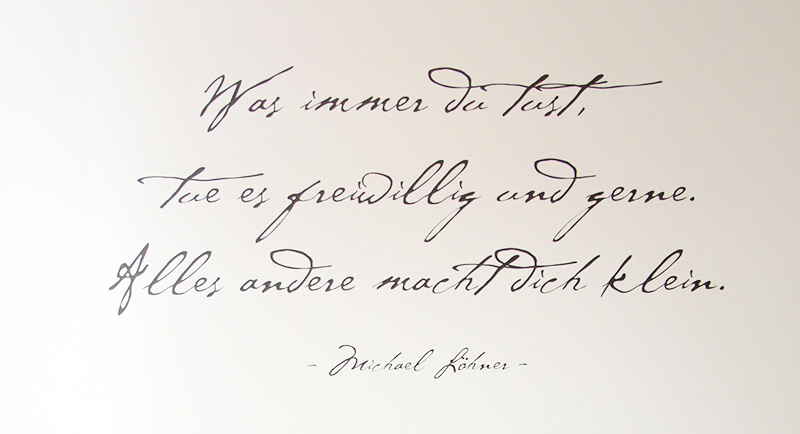 Was immer du tust,
tue es freiwillig und gerne.
Alles andere macht dich klein.
- Michael Löhner -